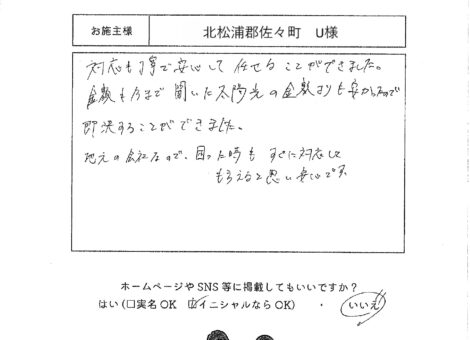 お施主様 北松浦郡佐々町 U様
対応も丁寧で安心して任せることができました。
金額も今まで聞いた太陽光の金額よりも安かったので
即決することができました。
地元の会社なので、困った時もすぐに対応して
もらえると思い安心です。
ホームページやSNS等に掲載してもいいですか？
はい(□実名OK ☑イニシャルならOK) ・ いいえ